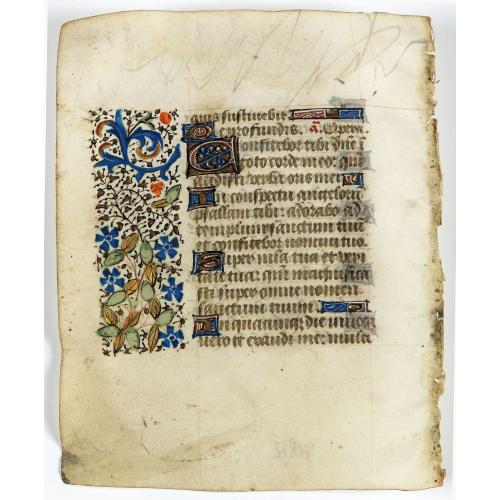 quis sustinebit
De profundis. a. Opera
Confitebor tibi dñe ĩ
toto corde meo: qm̃
audisti verba oris mei
In conspectu angelorũ
psallam tibi: adorabo ad
templum sanctum tuũ
et confitebor nomini tuo
Super mĩa tua et veri
tate tua: qm̃ magnifica
sti super omne nomen
sanctum tuum
In quacunq; die invoca
vero te exaudi me: multi